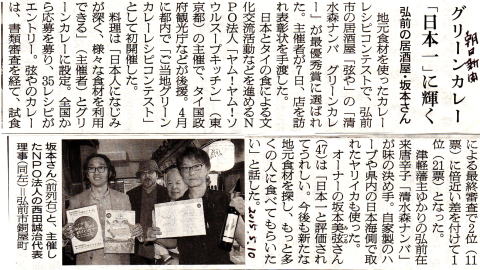 朝日新聞
グリーンカレー
「日本一」に輝く
弘前の居酒屋・坂本さん
地元食材を使ったカレー
レシピコンテストで、弘前
市の居酒屋「弦や」の「清
水森ナンバ グリーンカレ
ー」が最優秀賞に選ばれ
た。主催者が7日、店を訪
れ表彰状を手渡した。
日本とタイの食による文
化交流活動などを進めるN
PO法人「ヤム!ヤム!ソ
ウルスープキッチン」（東
京都）の主催で、タイ国政
府観光庁などが後援。4月
に都内で「ご当地グリーン
カレーレシピコンテスト」
として初開催した。
料理は「日本人になじみ
が深く、様々な食材を利用
できる」（主催者）とグリ
ーンカレーに設定。全国か
ら応募を募り、35レシピが
エントリー。弦やのカレー
は、書類審査を経て、試食
による最終審査で2位（11
票）に倍近い差を付けて1
位（21票）となった。
津軽藩主ゆかりの弘前在
来唐辛子「清水森ナンバ」
が味の決め手。自家製のハ
ーブや県内の日本海側で取
れたヤリイカも使った。
オーナーの坂本美弦さん
(47)は「日本一と評価され
てうれしい。今後も新たな
地元食材を探し、もっと多
くの人に食べてもらいた
い」と話した。
2015.5.10
坂本さん（前列右）と、主催し
たNPO法人の西田誠治代表
理事（同左）＝弘前市銅屋町